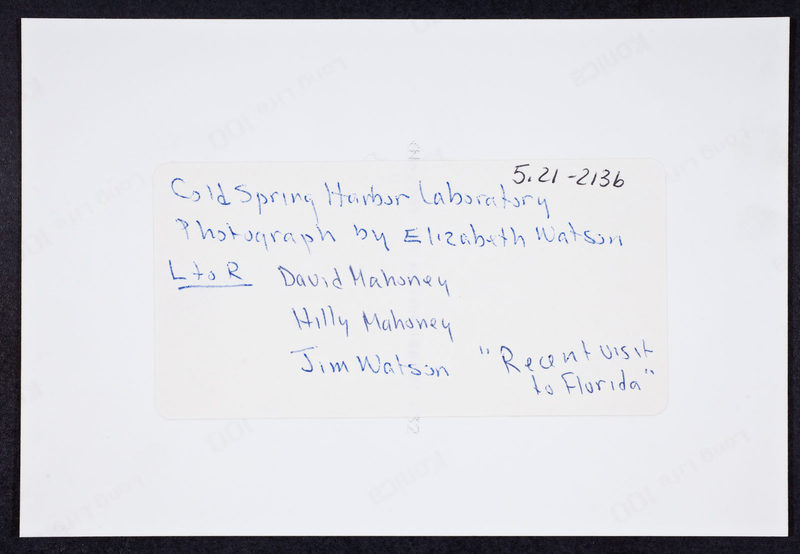 5.21-213b
Cold Spring Harbor Laboratory
Photograph by Elizabeth Watson
L to R David Mahoney
Hilly Mahoney
Jim Watson "Recent visit
to Florida"